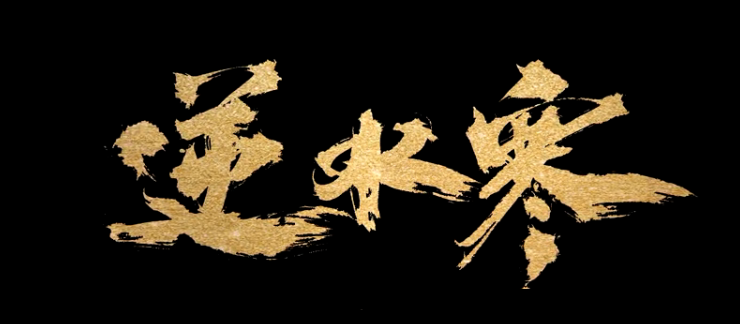 逆水寒